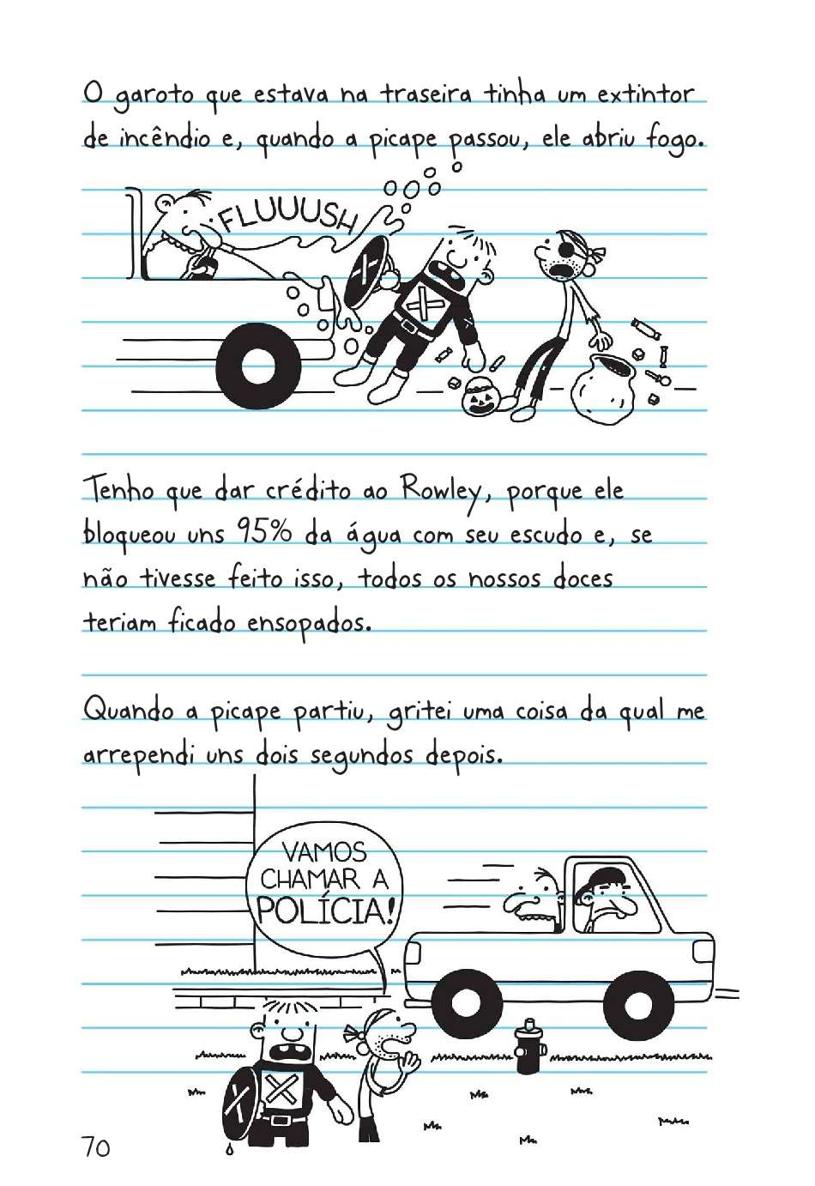 O garoto que estava na traseira tinha um extintor
de incêndio e, quando a picape passou, ele abriu fogo.
FLUUUSH
Tenho que dar crédito ao Rowley, porque ele
bloqueou uns 95% da água com seu escudo e, se
não tivesse feito isso, todos os nossos doces
teriam ficado ensopados.
Quando a picape partiu, gritei uma coisa da qual me
arrependi uns dois segundos depois.
VAMOS
CHAMAR A
POLÍCIA!
70